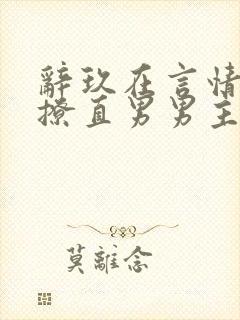 辭玖在言情
撩直男男主
莫離念